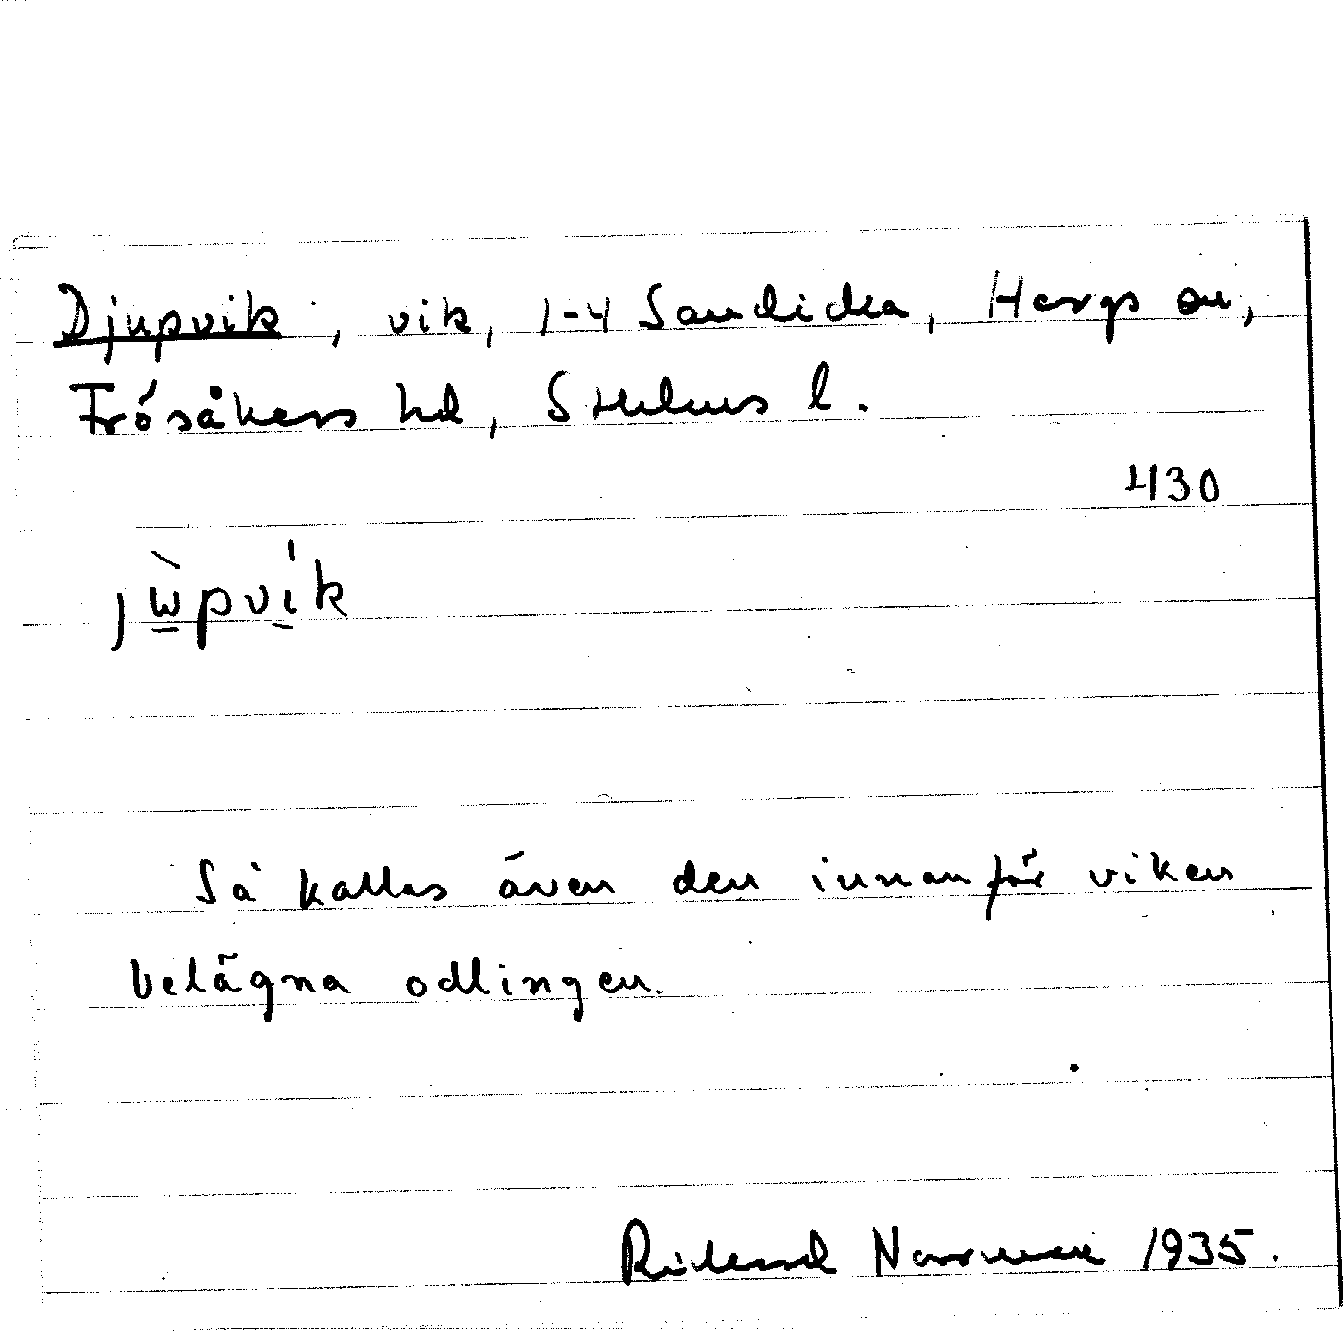 Djupvik, vik, 1-4 Sandika, Hargs sn,
Frösåkers hd, Sthlms l.
430
jὼpvík
Så kallas även den innanför viken
belägna odlingen.
Rickard Norrman 1935.